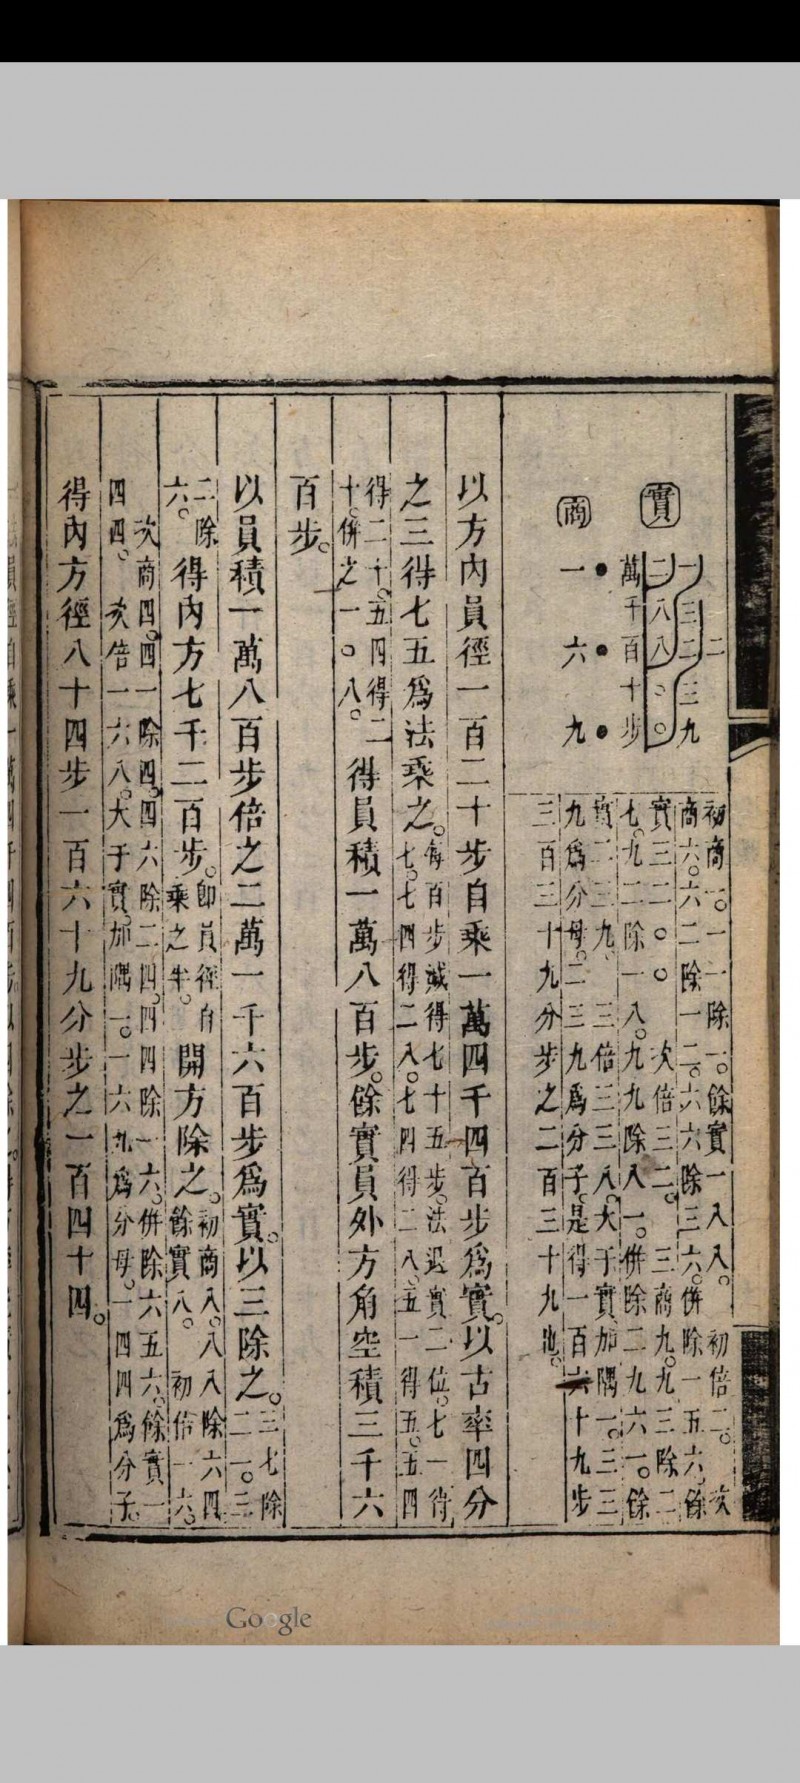 實
二
一三二三九
二八八〇〇
萬千百十步
商
一六九
初商一。一一除一。餘實一八八。初倍二。次
商六。六二除一二。六六除三六。併除一五六。餘
實三二〇〇次倍三二。三商九。九三除二
七。九二除一八。九九除八一。併除二九六一。餘
實二三九。三倍三三八。大于實加隅一。三三
九爲分母。二三九爲分子。是得一百六十九步
三百三十九分步之二百三十九也。
以方內員徑一百二十步自乘一萬四千四百步爲實。以古率四分
之三得七五爲法乘之。每百步減得七十五步。法退實二位。七一得七。七四得二八。七四得二八。五一得五。五四
得二十。五四得二十。併之一〇八。得員積一萬八百步。餘實員外方角空積三千六
百步。
以員積一萬八百步倍之二萬一千六百步爲實。以三除之。三七除二一。三
二除六。得內方七千二百步。即員徑自乘之半。開方除之。初商八。八八除六四餘實八。初倍一六。
次商四。四一除四。四六除二四。四四除一六。併除六五六。餘實一
四四。次倍一六八。大于實。加隅一。一六九爲分母。一四四爲分子。
得內方徑八十四步一百六十九分步之一百四十四。
Google